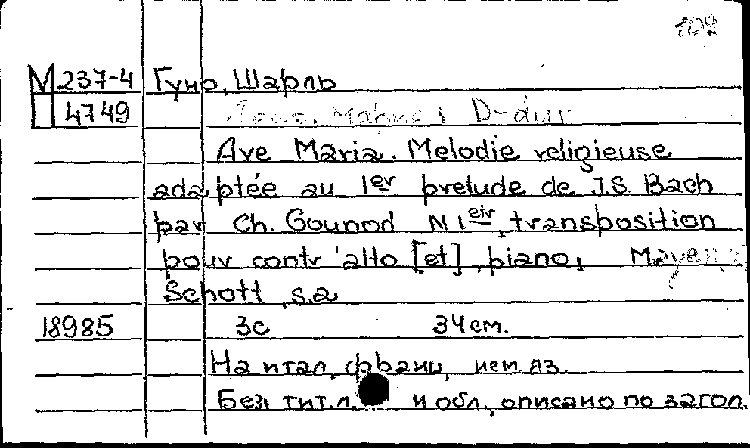 М 237-4 Гуно, Шарль
П 4749 D-dur
Ave Maria. Melodie religieuse
adaptée au 1er prelude de J.S. Bach
par Ch. Gounod N 1 eir, transposition
pour contr'alto [et] piano,
Schott, s.a
18985 3с 34см.
На итал, франц, нем яз.
Без тит.л. и обл, описано по загол.